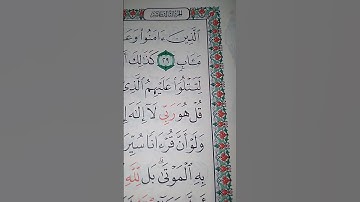 ٱلَّذِينَ ءَامَنُوا۟ وَعَ
مَـَٔابٍ ٢٩ كَذَٰلِكَ أَ
لِّتَتْلُوَا۟ عَلَيْهِمُ ٱلَّذِىٓ
قُلْ هُوَ رَبِّى لَآ إِلَٰهَ إِ
وَلَوْ أَنَّ قُرْءَانًا سُيِّرَ
بِهِ ٱلْمَوْتَىٰ ۗ بَل لِّلَّهِ